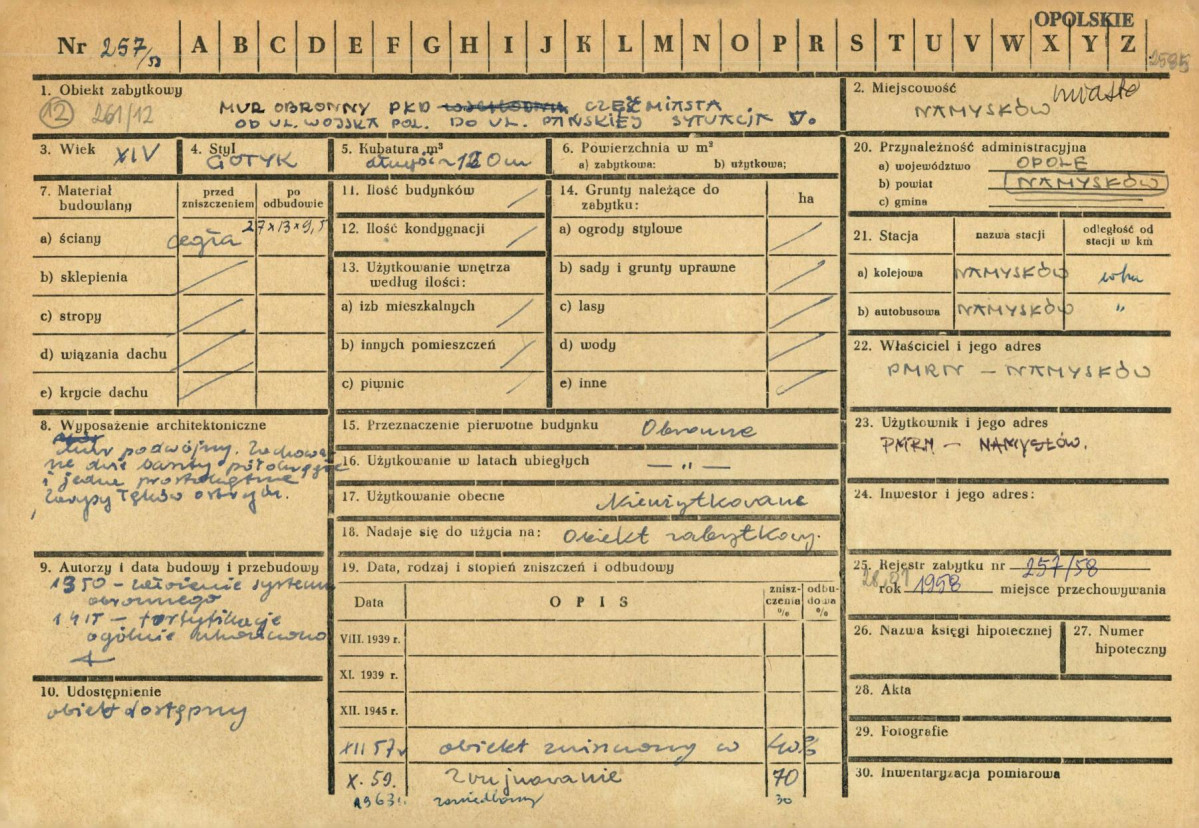 OPOLSKIE
Nr 257/58 A B C D E F G H I J K L M N O P R S T U V W X Y Z
2585
1. Obiekt zabytkowy
12 261/12
MUR OBRONNY PŁD WSCHODNIA CZĘŚĆ MIASTA
OD UL. WOJSKA POL. DO UL. PAŃSKIEJ SYTUACJA V.
2. Miejscowość miasto
NAMYSŁÓW
3. Wiek XIV
4. Styl GOTYK
5. Kubatura m³
długość ~ 120 m
6. Powierzchnia w m²
a) zabytkowa: b) użytkowa;
20. Przynależność administracyjna
a) województwo OPOLE
b) powiat NAMYSŁÓW
c) gmina
7. Materiał budowlany
przed zniszczeniem
po odbudowie
a) ściany cegła 27×13×9,5
b) sklepienia
c) stropy
d) wiązania dachu
e) krycie dachu
11. Ilość budynków
12. Ilość kondygnacji
13. Użytkowanie wnętrza
według ilości:
a) izb mieszkalnych
b) innych pomieszczeń
c) piwnic
14. Grunty należące do
zabytku:
ha
a) ogrody stylowe
b) sady i grunty uprawne
c) lasy
d) wody
e) inne
21. Stacja
nazwa stacji
odległość od
stacji w km
a) kolejowa NAMYSŁÓW
b) autobusowa NAMYSŁÓW "
22. Właściciel i jego adres
PMRN – NAMYSŁÓW
8. Wyposażenie architektoniczne
Mur podwójny. Zachowa-
ne dwie baszty półokrągłe
i jedna prostokątna
Zarysy łęków ostrych.
15. Przeznaczenie pierwotne budynku Obronne
16. Użytkowanie w latach ubiegłych — " —
17. Użytkowanie obecne Nieużytkowane
18. Nadaje się do użycia na: Obiekt zabytkowy.
23. Użytkownik i jego adres
PMRN – NAMYSŁÓW.
24. Inwestor i jego adres:
9. Autorzy i data budowy i przebudowy
1350 – założenie systemu
obronnego
1415 – fortyfikacje
ogólnie
10. Udostępnienie
obiekt dostępny
19. Data, rodzaj i stopień zniszczeń i odbudowy
Data
OPIS
zniszczenia %
odbudowa %
VIII. 1939 r.
XI. 1939 r.
XII. 1945 r.
XII 57 r obiekt zniszczony w 40%
X. 59. Zrujnowanie 70
1963 r. zaniedbany 30
25. Rejestr zabytku nr 257/58
rok 1958 miejsce przechowywania
26. Nazwa księgi hipotecznej
27. Numer
hipoteczny
28. Akta
29. Fotografie
30. Inwentaryzacja pomiarowa